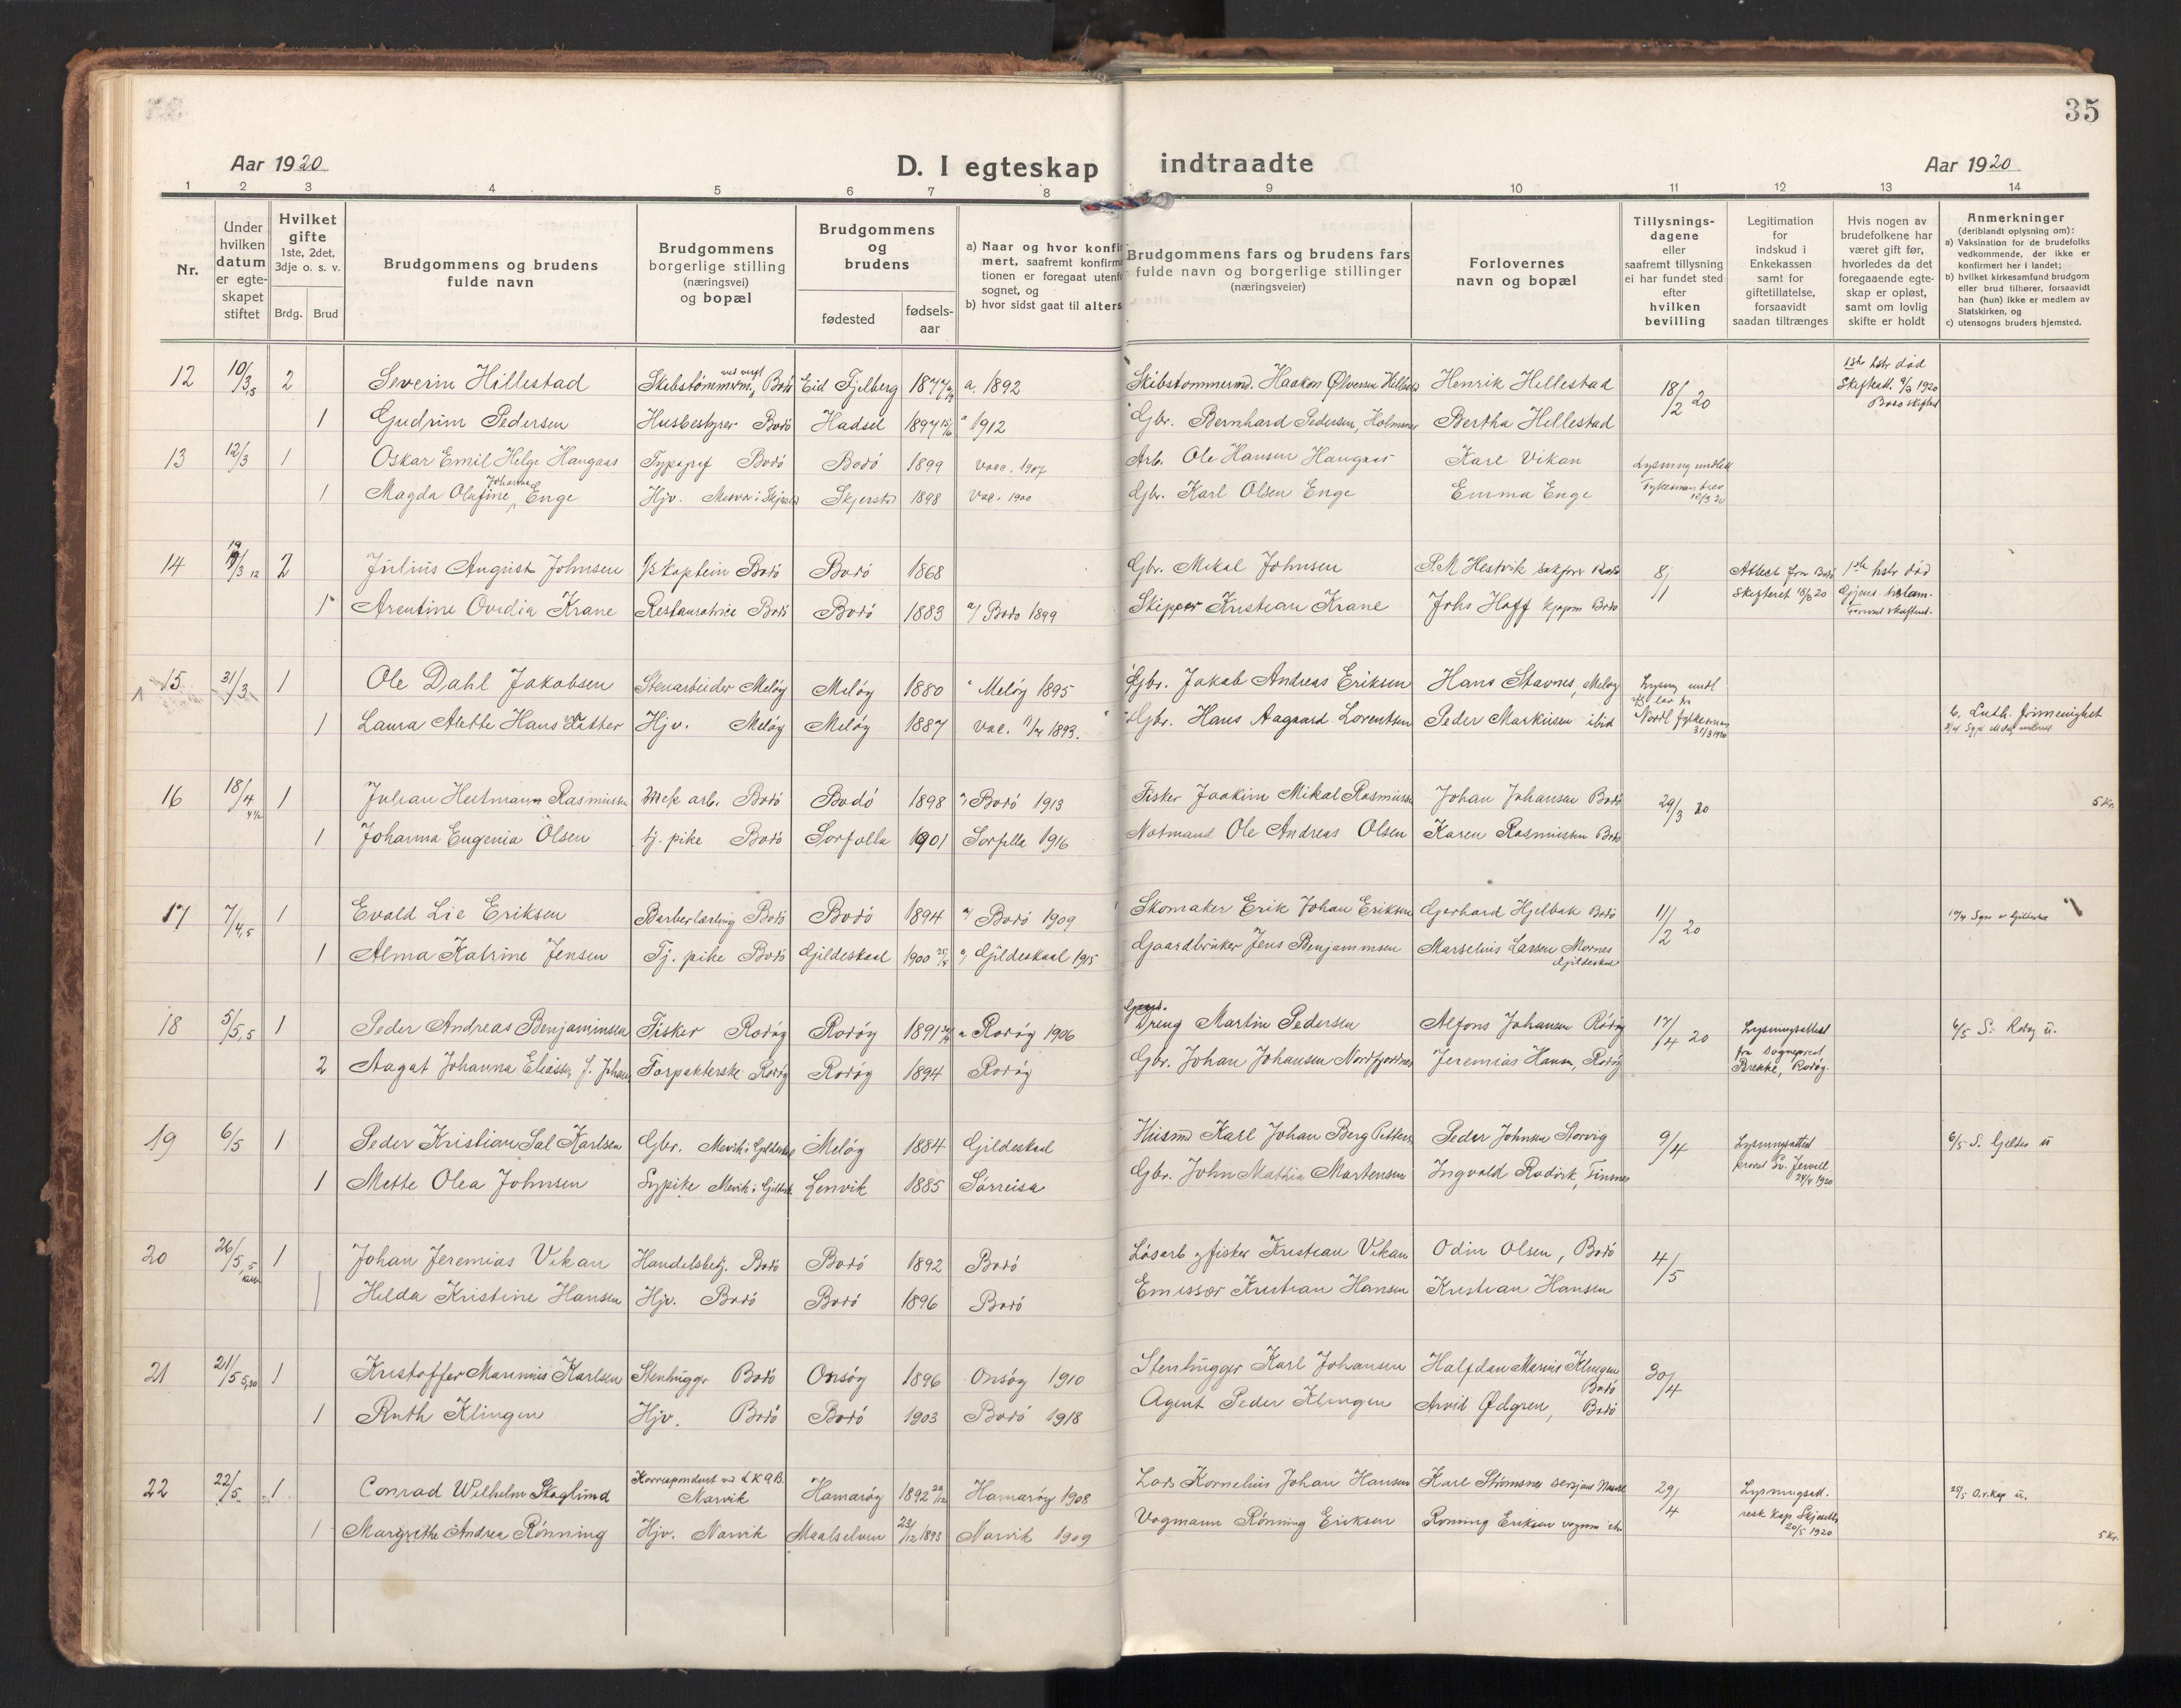 35
Aar 1920
D. I egteskap indtraadte
Aar 1920
1 2 3 4 5 6 7 8 9 10 11 12 13 14
Nr.
Under hvilken datum er egteskapet stiftet
Hvilket gifte 1ste, 2det, 3dje o. s. v.
Brdg. Brud
Brudgommens og brudens fulde navn
Brudgommens borgerlige stilling (næringsvei) og bopæl
Brudgommens og brudens
fødested
fødsels-aar
a) Naar og hvor konfirmert, saafremt konfirmationen er foregaat utenfor sognet, og
b) hvor sidst gaat til alters
Brudgommens fars og brudens fars fulde navn og borgerlige stillinger (næringsveier)
Forlovernes navn og bopæl
Tillysnings-dagene eller saafremt tillysning ei har fundet sted efter hvilken bevilling
Legitimation for indskud i Enkekassen samt for giftetillatelse, forsaavidt saadan tiltrænges
Hvis nogen av brudefolkene har været gift før, hvorledes da det foregaaende egteskap er opløst, samt om lovlig skifte er holdt
Anmerkninger (deriblandt oplysning om):
a) Vaksination for de brudefolks vedkommende, der ikke er konfirmert her i landet;
b) hvilket kirkesamfund brudgom eller brud tilhører, forsaavidt han (hun) ikke er medlem av Statskirken, og
c) utensogns bruders hjemsted.
12 10/3,5 2 Severin Hillestad Skibstømmerm. Bodö Eid Fjelberg 1877 a. 1892 Skibstommermd. Haakon Ølversen Henrik Hillestad 18/2 20 1ste hstr död Skifteatt. 9/3 1920
1 Gudrun Pedersen Husbestyrer Bodö Hadsel 1897 " 1912 Gbr. Bernhard Pedersen, Bertha Hillestad
13 12/3 1 Oskar Emil Helge Haugaas Typograf Bodö Bodö 1899 vacc. 1907 Arb. Ole Hansen Haugaas Karl Vikan
1 Magda Olufine Johanna Enge Hjv. Skjerstad 1898 Vac. 1900 Gbr. Karl Olsen Enge Emma Enge 12/3 20
14 19/3 12 2 Julius August Johnsen Kaptein Bodö Bodö 1868 Gbr. Mikal Johnsen P.M Hestvik Bodö 8/1 Attest fra Bodö skifteret 18/3 20 1ste hstr död
1 Arentine Ovidia Krane Restauratrice Bodö Bodö 1883 a) Bodö 1899 Skipper Kristian Krane Johs Hoff kjøpm Bodö
15 31/3 1 Ole Dahl Jakobsen Stenarbeider Melöy Melöy 1880 " Melöy 1895 Gbr. Jakob Andreas Eriksen Hans Stavnes, Melöy
1 Laura Alette Hansdatter Hjv. Melöy Melöy 1887 Vac. 1893. Gbr. Hans Aagaard Lorentsen Peder Markusen ibid 31/3 1920 b, Luth. frimenighet
16 18/4 1 Johan Hartmann Rasmussen Mek arb. Bodö Bodö 1898 " Bodö 1913 Fisker Joakim Mikal Rasmussen Johan Johansen Bodö 29/3 20 5 Kr.
1 Johanna Eugenia Olsen tj. pike Bodö Sorfolla 1901 Sorfolla 1916 Notmand Ole Andreas Olsen Karen Rasmussen Bodö
17 7/4,5 1 Evald Lie Eriksen Barberlærling Bodö Bodö 1894 a) Bodö 1909 Skomaker Erik Johan Eriksen Gerhard Hjelbak Bodö 11/2 20
1 Alma Katrine Jensen Tj. pike Bodö Gildeskaal 1900 a) Gildeskaal 1915 Gaardbruker Jens Benjaminsen Marselius Lassen Mornes Gildeskaal
18 5/5,5 1 Peder Andreas Benjaminsen Fisker Rodöy Rodöy 1891 a Rodöy 1906 Dreng Martin Pedersen Alfons Johansen Rödöy 17/4 20 Lysningsattest fra sognepræst Brekke, Rodöy. 6/5 S. Rodøy ü.
2 Aagat Johanna Eliassen f. Johans Forpakterske Rodöy Rodöy 1894 Rodöy Gbr. Johan Johansen Nordfjordnes Jeremias Hansen, Rodöy
19 6/5 1 Peder Kristian Sal Karlsen Gbr. Mevik i Gildeskaal Melöy 1884 Gildeskaal Husmd Karl Johan Berg Petters Peder Johnsen Storvig 9/4 Lysningsattest 24/4 1920 6/5 S. Gildes ü
1 Mette Olea Johnsen Sypike Mevik i Gildesk. Lenvik 1885 Sørreisa Gbr. John Mathia Martensen Ingvald Rodvik, Finsnes
20 26/5,5 1 Johan Jeremias Vikan Handelsbetj. Bodö Bodö 1892 Bodö Lösarb. og fisker Kristian Vikan Odin Olsen, Bodö 4/5
1 Helda Kristine Hansen Hjv. Bodö Bodö 1896 Bodö Emissær Kristian Hansen Kristian Hansen
21 21/5 5,30 1 Kristoffer Marinius Karlsen Stenhugger Bodö Onsöy 1896 Onsöy 1910 Stenhugger Karl Johansen Halfdan Marius Klingen Bodö 30/4
1 Ruth Klingen Hjv. Bodö Bodö 1903 Bodö 1918 Agent Peder Klingen Arvid Ødgren, Bodö
22 22/5 1 Conrad Wilhelm Skoglund Korrespondent ved L K A B. Narvik Hamaröy 1892 Hamaröy 1908 Lods Kornelius Johan Hansen Karl Strømsnes sersjant Narvik 29/4 Lysningsatt. resk. kap. 20/5 1920
1 Margrethe Andrea Rønning Hjv. Narvik Maalselven 23/12 1893 Narvik 1909 Vogmann Rønning Eriksen Rønning Eriksen vognm 5 Kr.